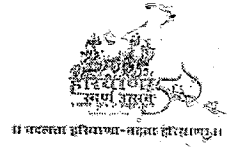 हरियाणा
स्वर्ण जयंती
॥ बदलता हरियाणा-बढ़ता हरियाणा ॥